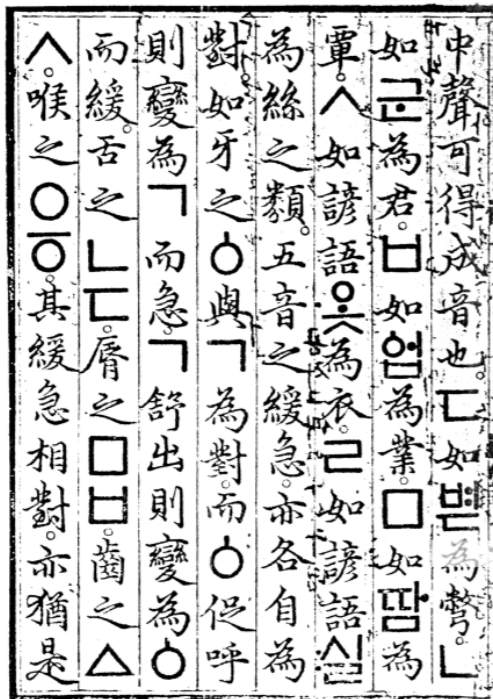 中聲可得成音也。ㄷ如볃為彆。ㄴ
如군為君。ㅂ如업為業。ㅁ如땀為
覃。ㅅ如諺語옷為衣。ㄹ如諺語실
為絲之類。五音之緩急。亦各自為
對。如牙之ㆁ與ㄱ為對。而ㆁ促呼
則變為ㄱ而急。ㄱ舒出則變為ㆁ
而緩。舌之ㄴㄷ。脣之ㅁㅂ。齒之ㅿ
ㅅ。喉之ㅇㆆ。其緩急相對。亦猶是